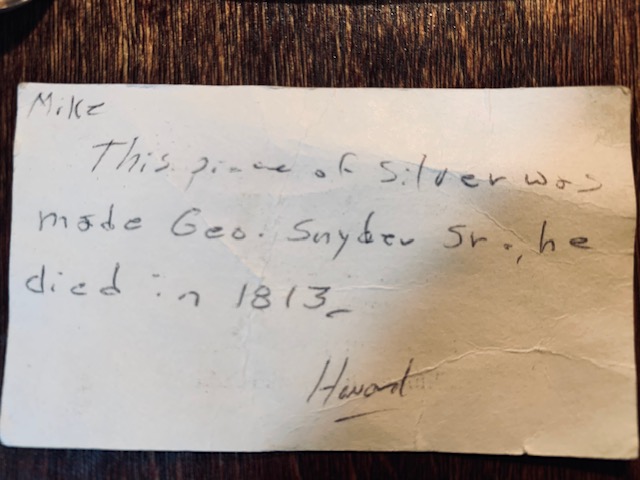 Mike
This piece of silver was
made Geo. Snyder Sr., he
died in 1813
Howard